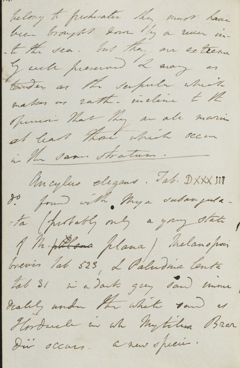 belong to freshwater they must have
been brought down by a river in-
to the sea. but they are extreme
ly well preserved & many as
tender as the serpula which
makes us rather incline to the
opinion that they are all marine
at least those which occur
in the same stratum.
Ancylus elegans. Tab. DXXXIII
do found with Mya subangula-
ta (probably only a young state
of M plana) Melanopsis
brevis tab 523, & Paludina lenta
tab 31 in a dark grey sand imme
diately under the white sand at
Hordwell in wh Mytilus Brar
dii occurs. a new species.